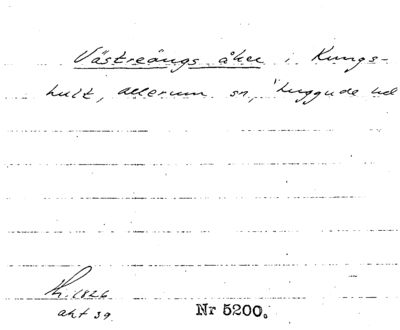 Västreängs åker i Kungs-
hult, Allerum sn, Luggude hd
Lh. 1826
akt 39 Nr 5200.